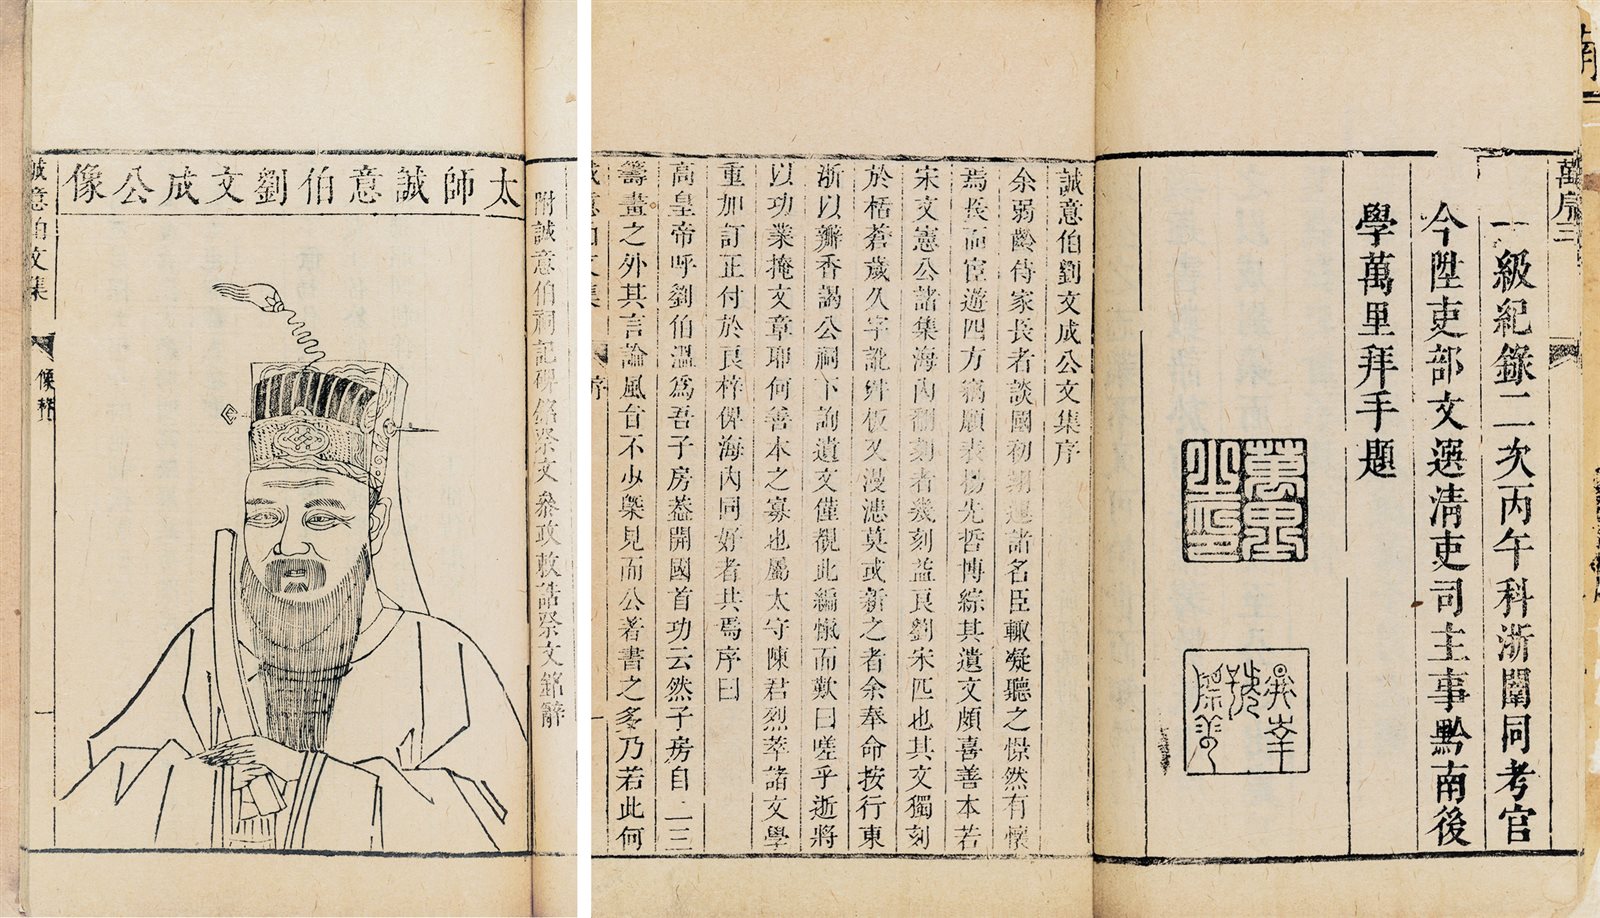 萬序三
一級紀錄二次丙午科浙闈同考官
今陞吏部文選清吏司主事黔南後
學萬里拜手題
萬里之印
誠意伯劉文成公文集序
余弱齡侍家長者談國初翊運諸名臣輒凝聽之憬然有懷
焉長而宦遊四方竊願表揚先哲博綜其遺文頗喜善本若
宋文憲公諸集海內翻刻者幾刻益良劉宋匹也其文獨刻
於栝蒼歲久字訛舛板又漫漶莫或新之者余奉命按行東
浙以瓣香謁公祠下詢遺文僅覩此編愾而歎曰嗟乎逝將
以功業掩文章耶何善本之寡也屬太守陳君烈萃諸文學
重加訂正付於良梓俾海內同好者共焉序曰
高皇帝呼劉伯溫爲吾子房葢開國首功云然子房自二三
籌畫之外其言論風旨不少槩見而公著書之多乃若此何
誠意伯文集 序 一
附誠意伯祠記碑銘祭文參政敕誥祭文銘辭
太師誠意伯劉文成公像
誠意伯文集 像贊 一